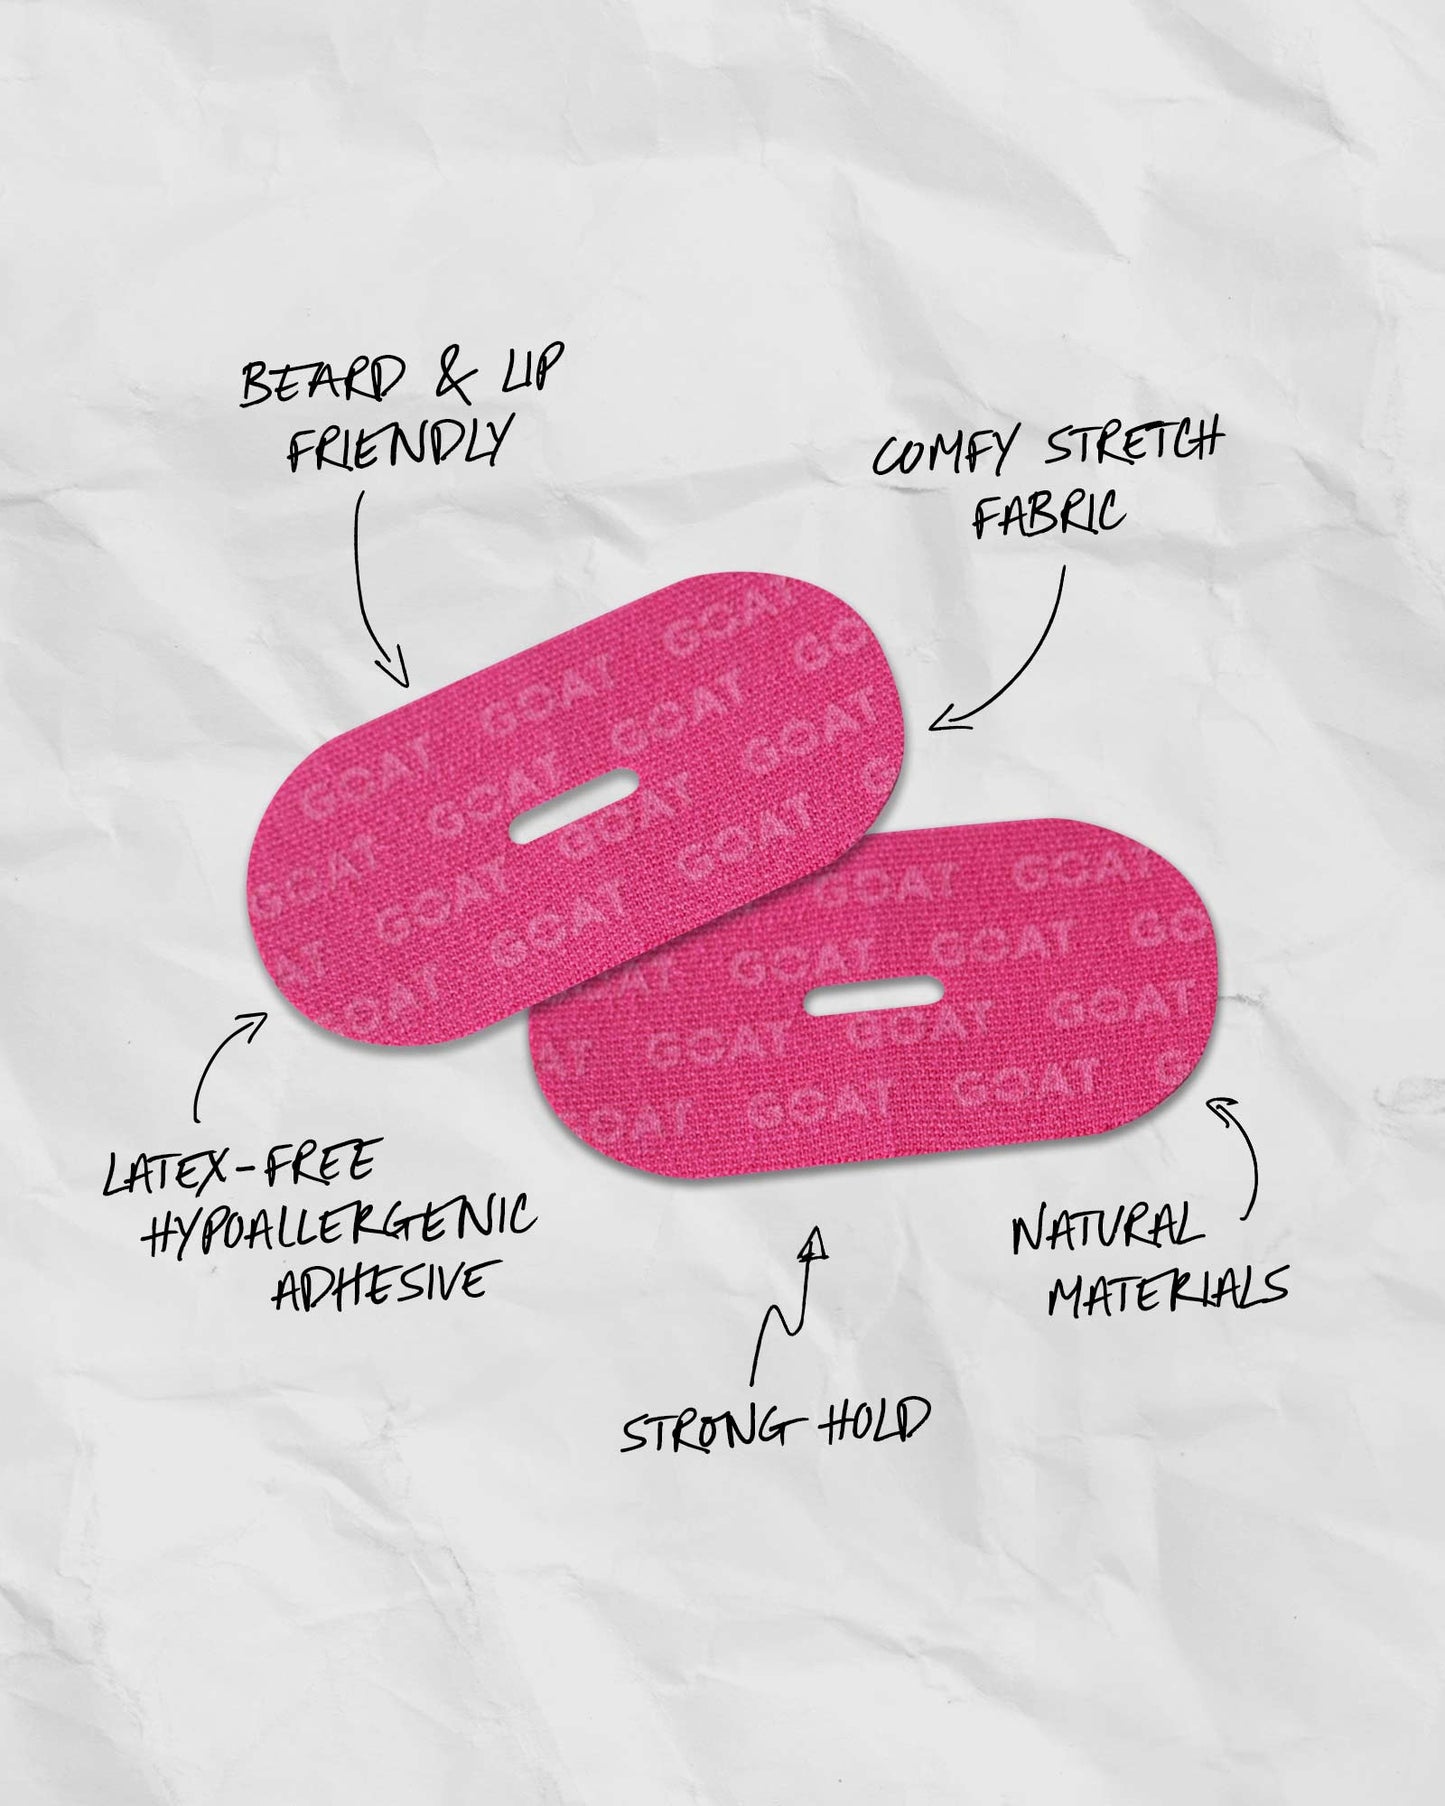 BEARD & LIP
FRIENDLY
COMFY STRETCH
FABRIC
GOAT GOAT GOAT
GOAT GOAT GO
GOAT GOAT GOAT
GOAT GOAT G
AT GOAT GOAT
OAT
GOAT GOAT
GOAT GOAT GO
GOAT GOAT GOAT
AT GOAT GOAT G
OAT
LATEX-FREE
HYPOALLERGENIC
ADHESIVE
NATURAL
MATERIALS
STRONG HOLD